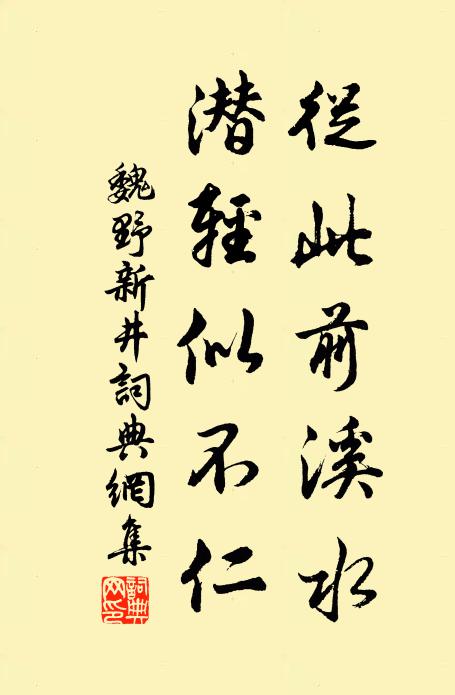 從此前溪水
潜輕似不仁
魏野新井詞典網集
詞典网印